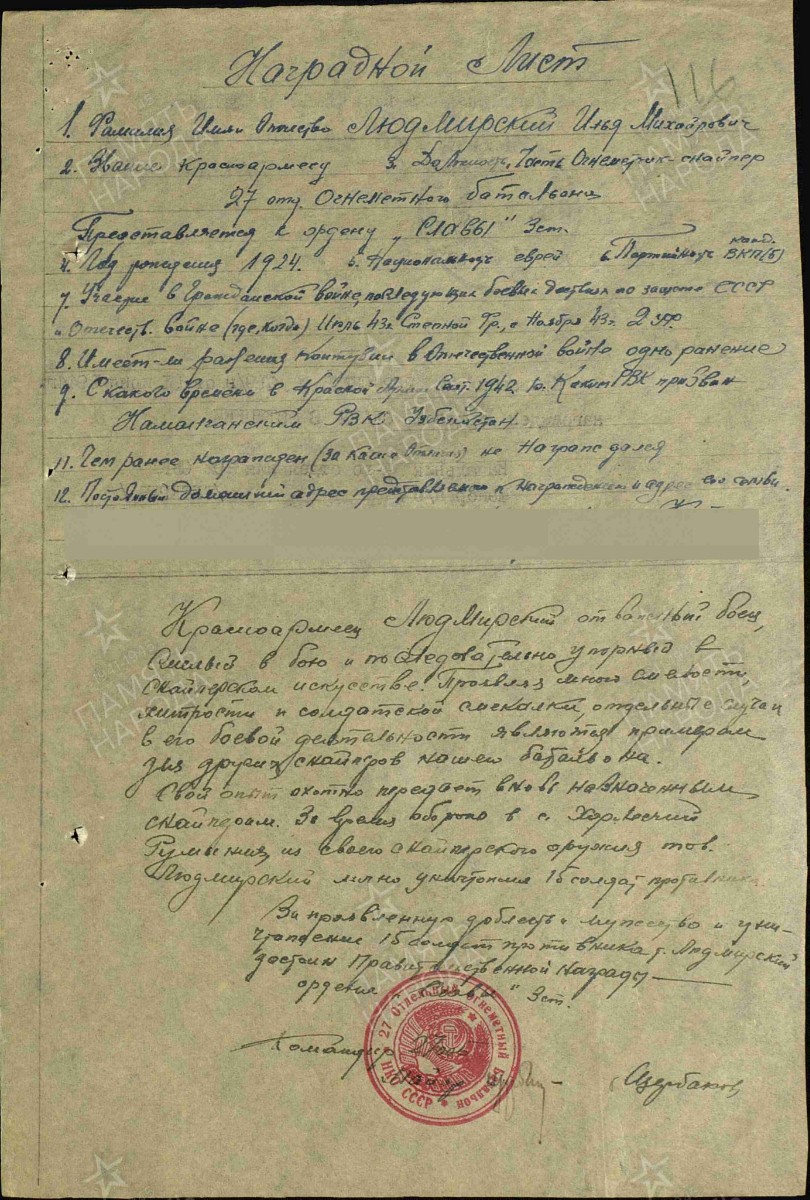 Наградной Лист
116
1. Фамилия Имя Отчество Людмирский Илья Михайлович
2. Звание Красноармеец 3. Должность, Часть Огнеметчик-снайпер
27 отд. Огнеметного батальона
Представляется к ордену „Славы" 3 ст.
4. Год рождения 1924. 5. Национальность еврей 6. Партийность канд. ВКП(б)
7. Участие в Гражданской войне, последующих боевых действиях по защите СССР
и Отечеств. войне (где, когда) Июль 43 г. Степной Фр., с Ноября 43 г. 2 УФ.
8. Имеет-ли ранения контузии в Отечественной войне одно ранение
9. С какого времени в Красной Армии Сент. 1942 10. Каким РВК призван
Наманганским РВК Узбекистан
11. Чем ранее награжден (за какие отличия) не Награждался
12. Постоянный домашний адрес представляемого к награждению и адрес его семьи.
Красноармеец Людмирский отважный боец,
смелый в бою и последовательно упорный в
снайперском искусстве. Проявляя много смелости,
хитрости и солдатской смекалки, отдельные случаи
в его боевой деятельности являются примером
для других снайперов нашего батальона.
Свой опыт охотно передает вновь назначенным
снайперам. За время обороны в с.
Румыния из своего снайперского оружия тов.
Людмирский лично уничтожил 15 солдат противника.
За проявленную доблесть и мужество и уни-
чтожение 15 солдат противника т. Людмирский
достоин Правительственной Награды
ордена „Славы" 3 ст.
Командир
Майор Щербаков
27 Отдельный огнеметный батальон
НКО СССР
ПАМЯТЬ НАРОДА